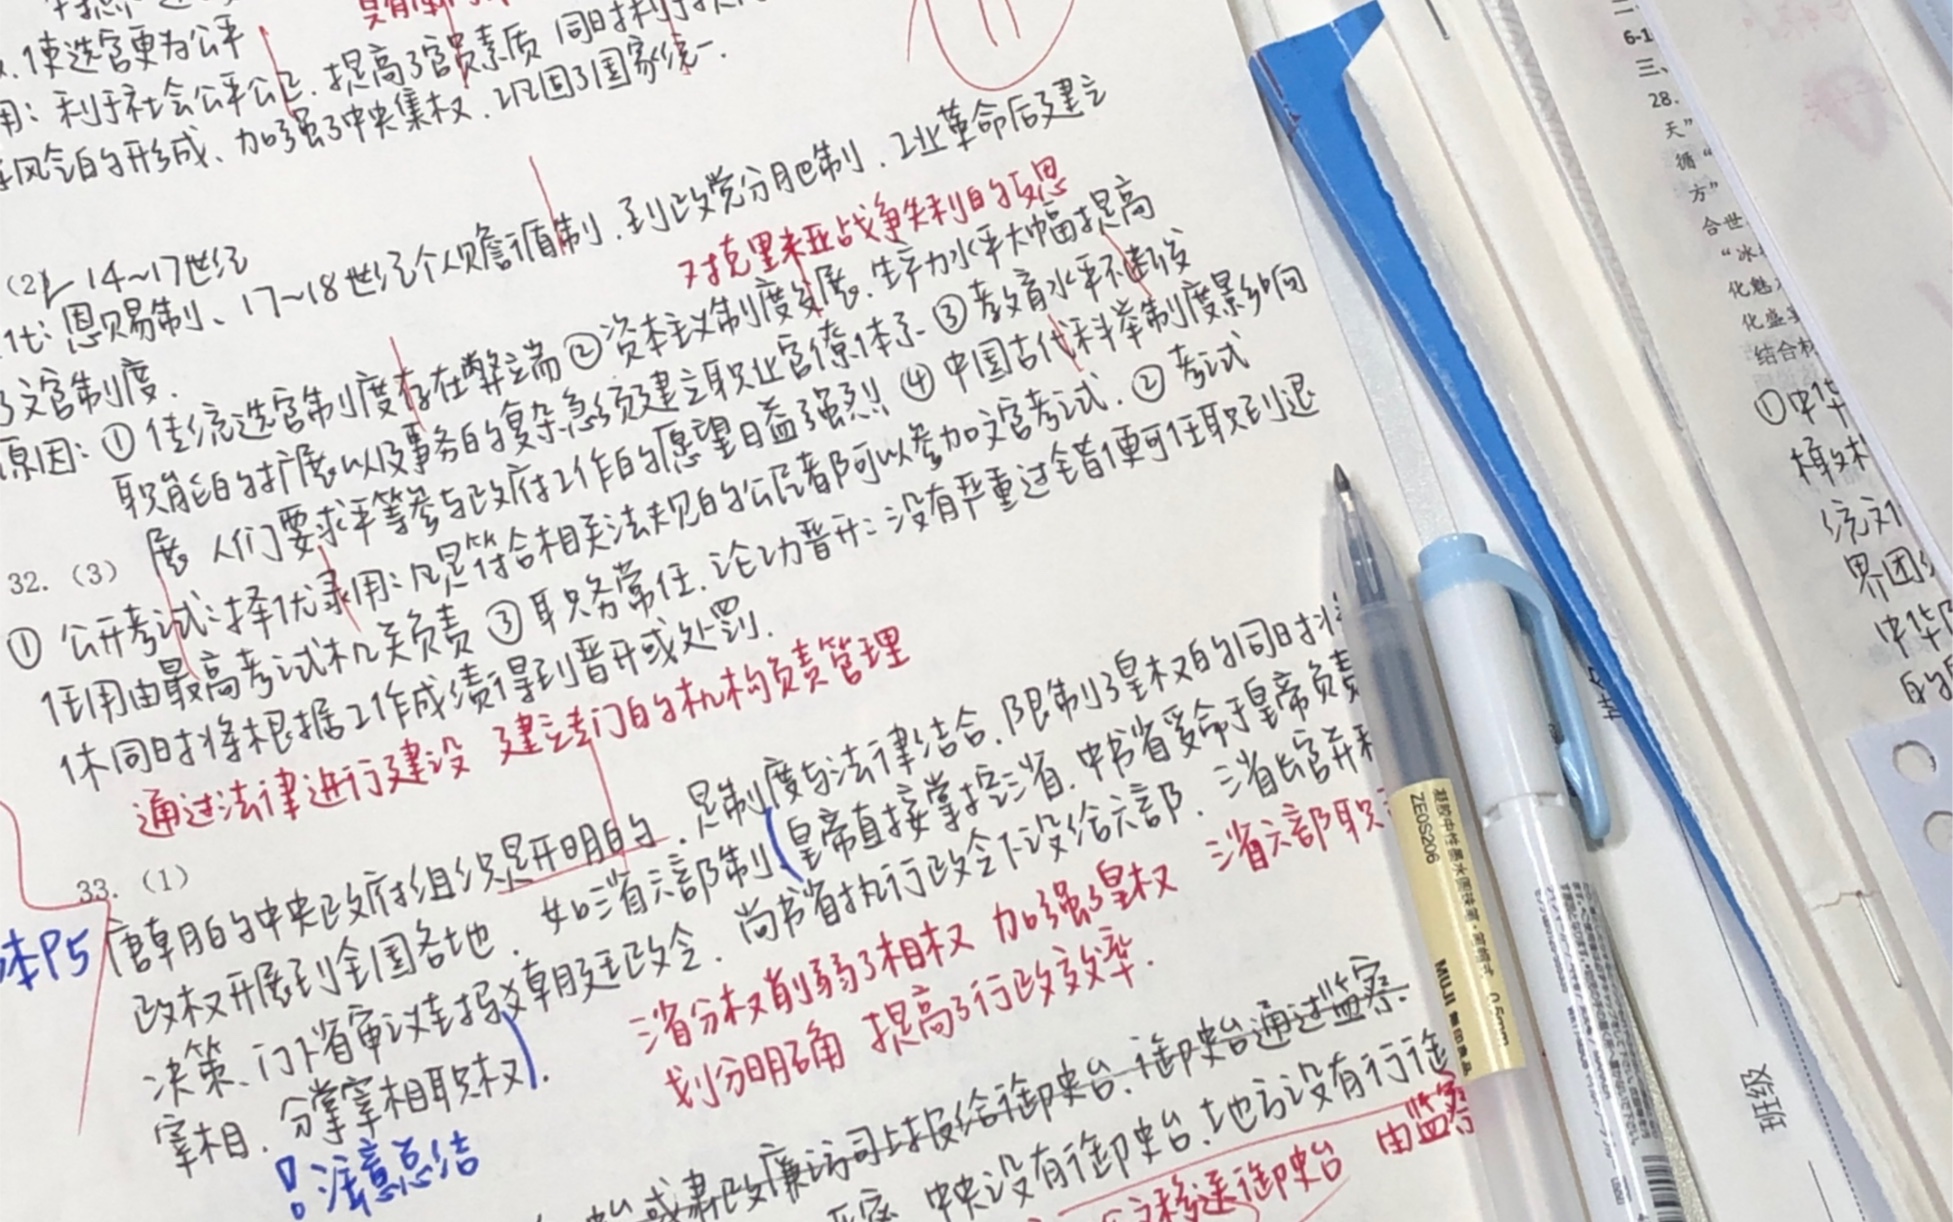 使选官更为公平
用：利于社会公平公正．提高了官员素质 同时利于
风气的形成、加强了中央集权．巩固了国家统一．
11
(2) 14~17世纪
代：恩赐制、17~18世纪个人赡徇制．到政党分肥制．工业革命后建立
对克里米亚战争失利的反思
了文官制度．
原因：①传统选官制度存在弊端②资本主义制度发展．生产力水平大幅提高
职能的扩展以及事务的复杂急须建立职业官僚体系③教育水平不断发
展 人们要求平等参与政府工作的愿望日益强烈④中国古代科举制度影响
32.（3）
①公开考试：择优录用：凡是符合相关法规的公民都可以参加文官考试．②考试
任用由最高考试机关负责③职务常任．论功晋升：没有严重过错皆便可任职到退
休同时将根据工作成绩得到晋升或处罚．
通过法律进行建设 建立专门的机构负责管理
33.（1）
本P5
唐朝的中央政府组织是开明的．是制度与法律结合．限制了皇权的同时将
政权开展到全国各地．如三省六部制（皇帝直接掌控三省．中书省受命于皇帝负责
决策、门下省审议封驳朝廷政令．尚书省执行政令下设给六部．三省长官并称
宰相．分掌宰相职权）．
三省分权削弱了相权 加强皇权 三省六部职
划分明确 提高了行政效率．
！注意总结
或肃政廉访司上报给御史台．御史台通过监察．
中央没有御史台．地方没有行御
移送御史台 由监察
凝胶中性墨水圆珠笔
ZE0S206
MUJI 無印良品
0.5mm
班级
二
6-1
三、
28.
天”
循“
方”
合世
“冰
化魅
化盛
结合材
①中华
橄榄
统文
界团
中华
的